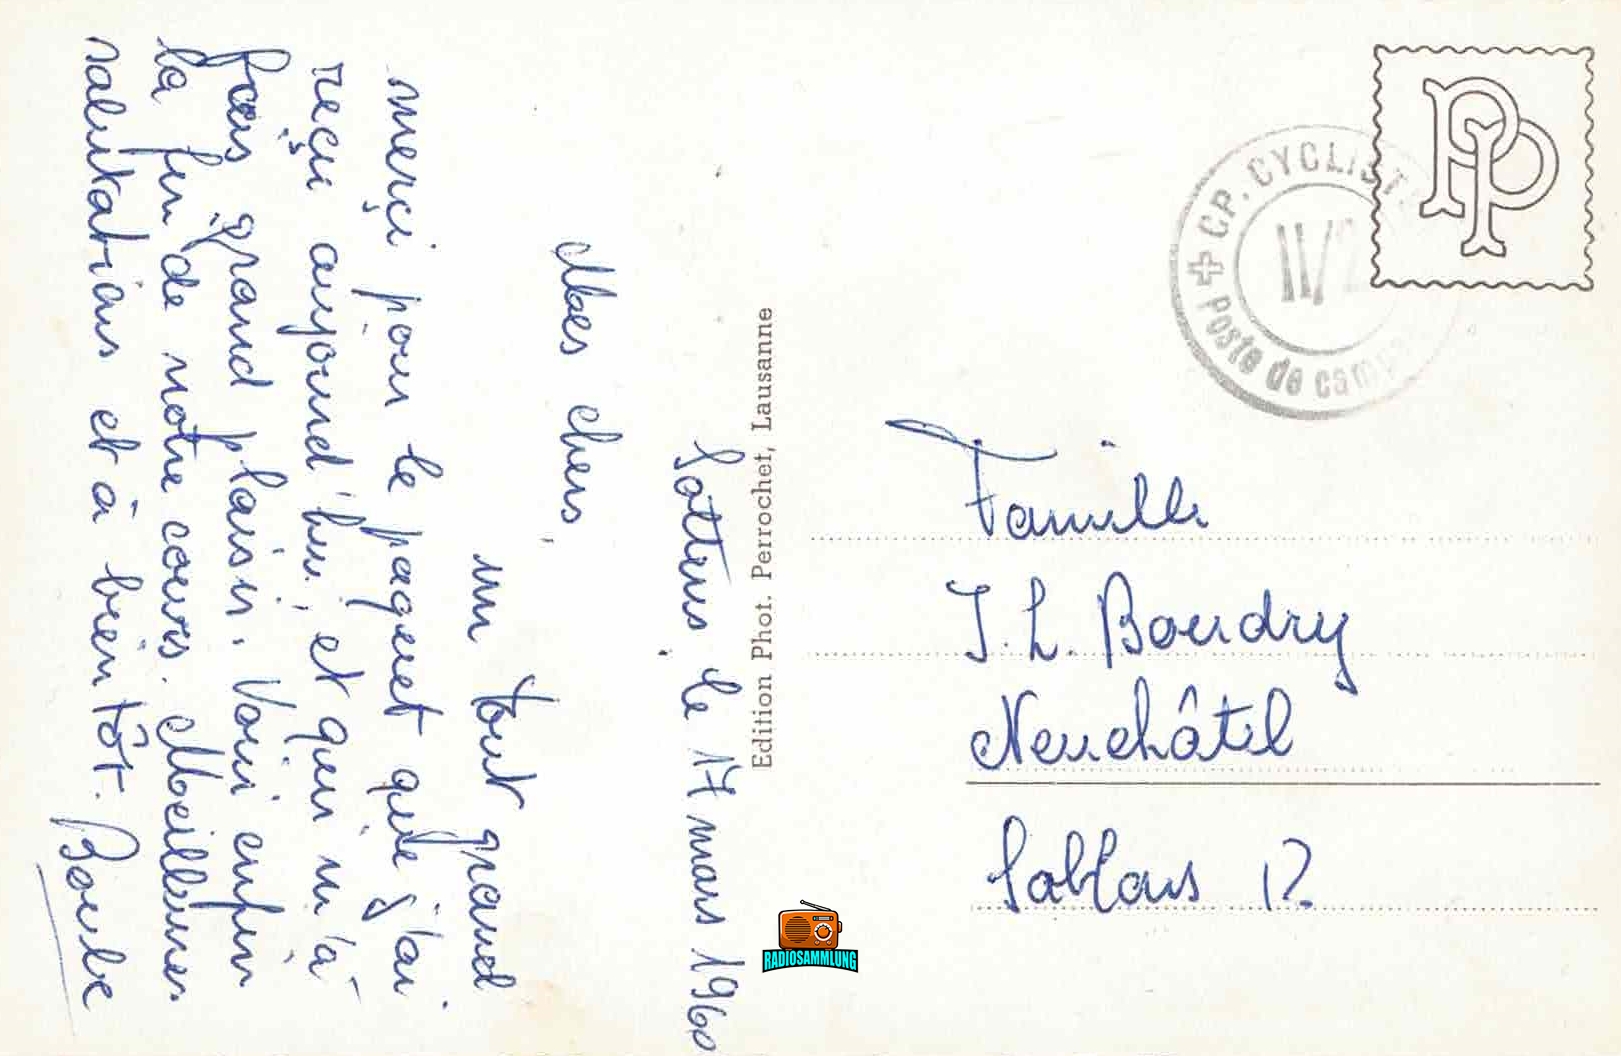 Sottens, le 17 mars 1960
Mes chers,
un tout grand
merçi pour le paquet que j'ai
reçu aujourd'hui, et qui m'a
fais grand plaisir. Voici enfin
la fin de notre cours. Meilleures
salutations et à bientôt. Boube
Edition Phot. Perrochet, Lausanne
PP
CP. CYCLIST
II/2
Poste de camp
Famille
J. L. Boudry
Neuchâtel
Sablons 12
RADIOSAMMLUNG